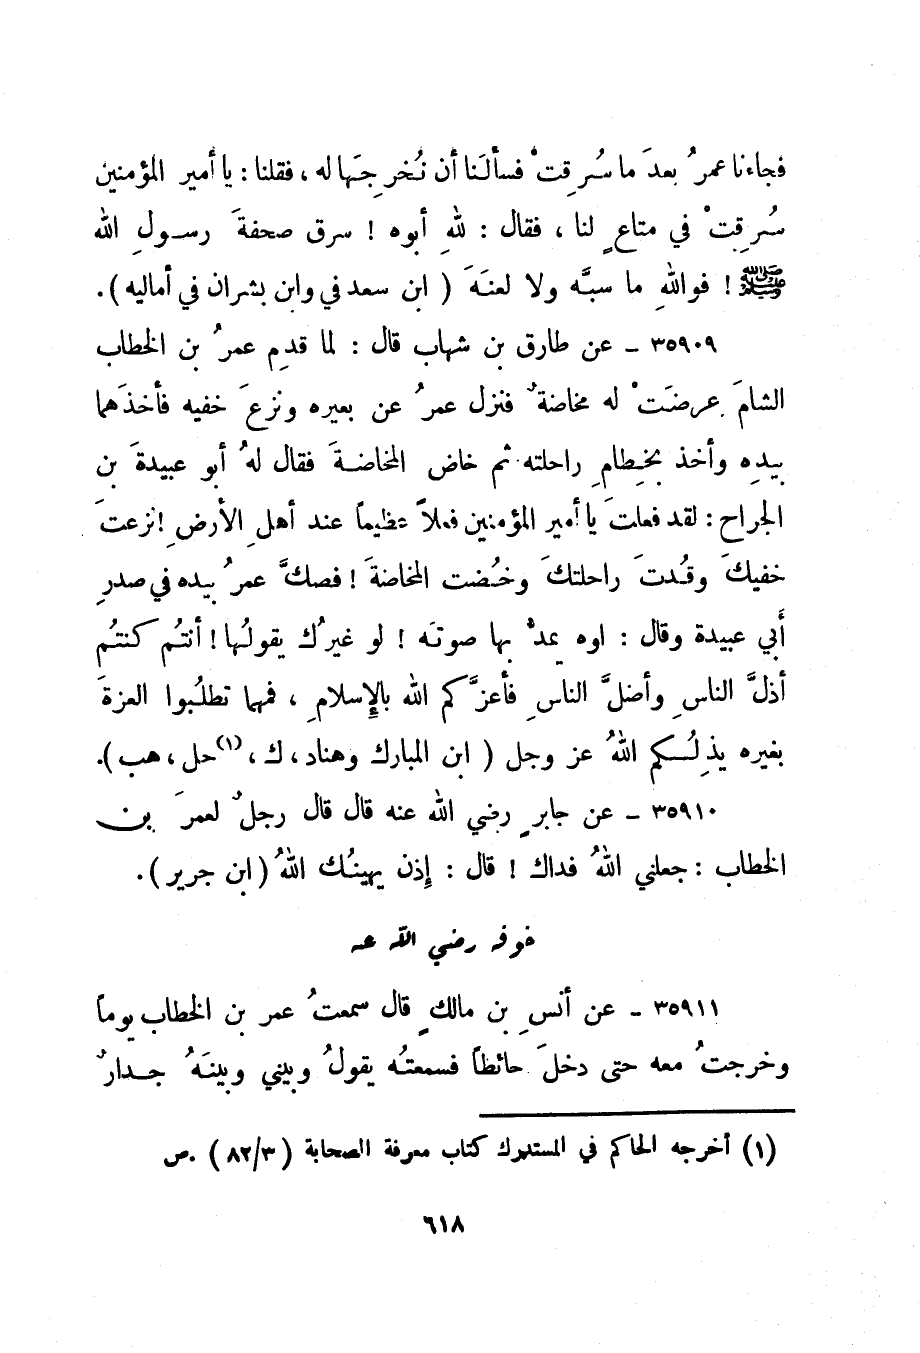 فجاءنا عمرُ بعدَ ما سُرِقتْ فسألَنا أن نُخرِجَها له ، فقلنا : يا أمير المؤمنين
سُرِقتْ في متاعٍ لنا ، فقال : للهِ أبوه ! سرق صحفةَ رسولِ الله
ﷺ ! فواللهِ ما سبَّه ولا لعنَهَ ( ابن سعد في وابن بشران في أماليه ) .
٣٥٩٠٩ ـ عن طارق بن شهاب قال : لما قدِم عمرُ بن الخطاب
الشامَ عرضَتْ له مخاضةٌ فنزل عمرُ عن بعيره ونزعَ خفيه فأخذَهما
بيدِه وأخذ بخِطامِ راحلته ثم خاض المخاضةَ فقال لهُ أبو عبيدةَ بن
الجراح : لقد فعلتَ يا أمير المؤمنين فعلاً عظيماً عند أهلِ الأرضِ ! نزعتَ
خفيكَ وقُدتَ راحلتكَ وخُضت المخاضةَ ! فصكَّ عمرُ بيده في صدرِ
أبي عبيدة وقال : اوه يمدْ بها صوتَه ! لو غيرُك يقولُها ! أنتُم كنتُم
أذلَّ الناسِ وأضلَّ الناسِ فأعزَّكم الله بالإِسلامِ ، فمهما تطلُبوا العزةَ
بغيره يذِلُكم اللهُ عز وجل ( ابن المبارك وهناد ، ك ،(١) حل ، هب ) .
٣٥٩١٠ ـ عن جابرٍ رضي الله عنه قال قال رجلٌ لعمرَ بن
الخطاب : جعلني اللهُ فداك ! قال : إِذن يهينُك اللهُ ( ابن جرير ) .
خوفه رضي الله عنه
٣٥٩١١ ـ عن أنسِ بن مالكٍ قال سمعتُ عمر بن الخطاب يوماً
وخرجتُ معه حتى دخلَ حائطاً فسمعتُه يقولُ وبيني وبينَهُ جدارٌ
(١) أخرجه الحاكم في المستدرك كتاب معرفة الصحابة ( ٨٢/٣ ) . ص
٦١٨